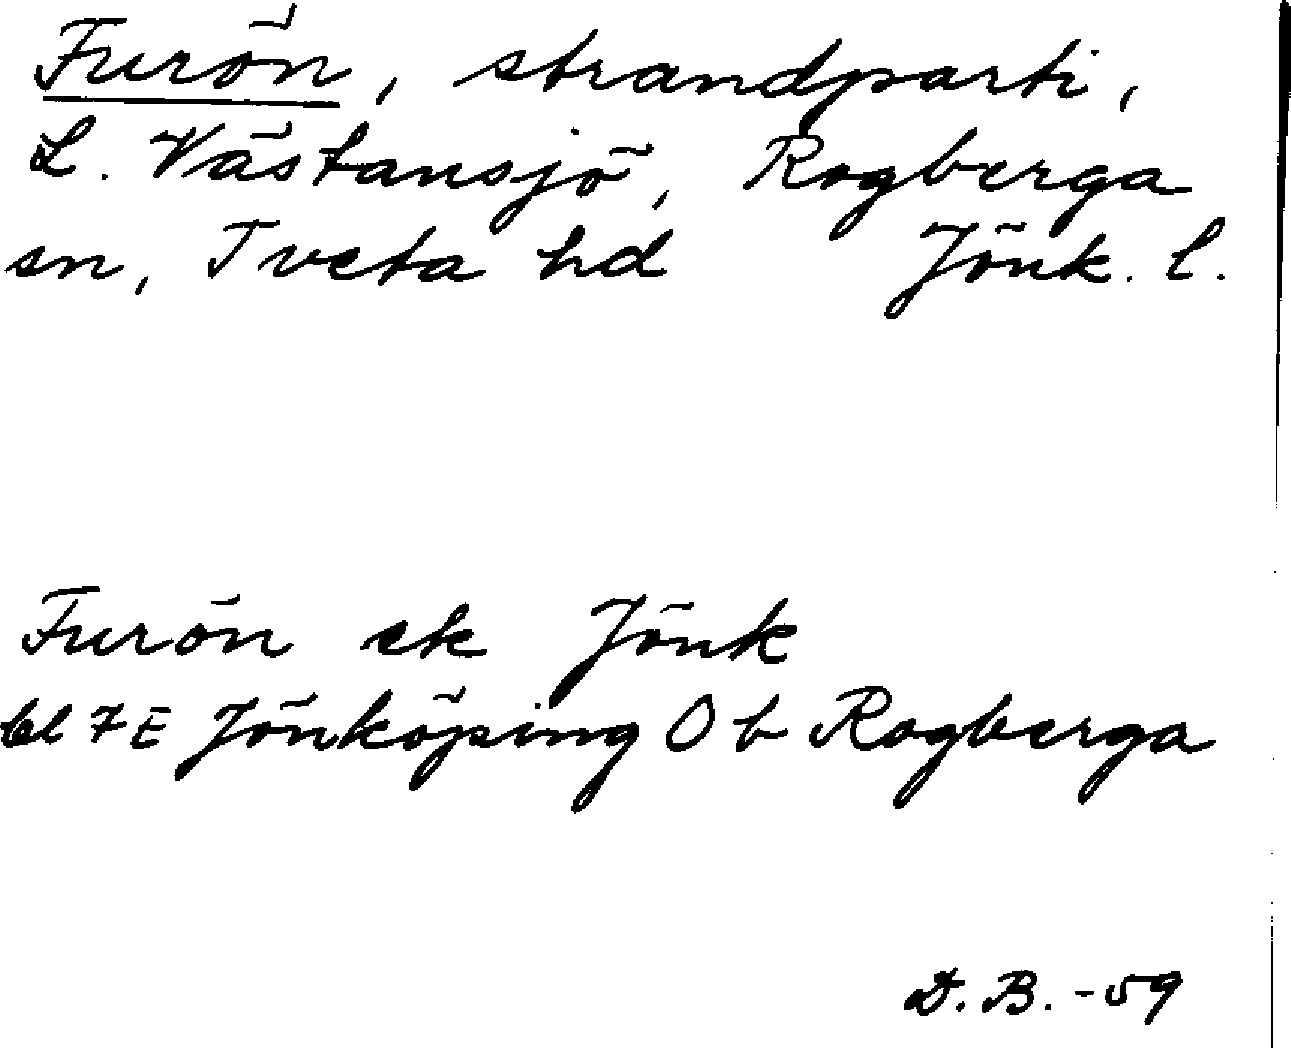 Furön, strandparti,
L. Västansjö, Rogberga
sn, Tveta hd Jönk. l.
Furön ek Jönk
bl 7E Jönköping 0 b Rogberga
D.B. -59